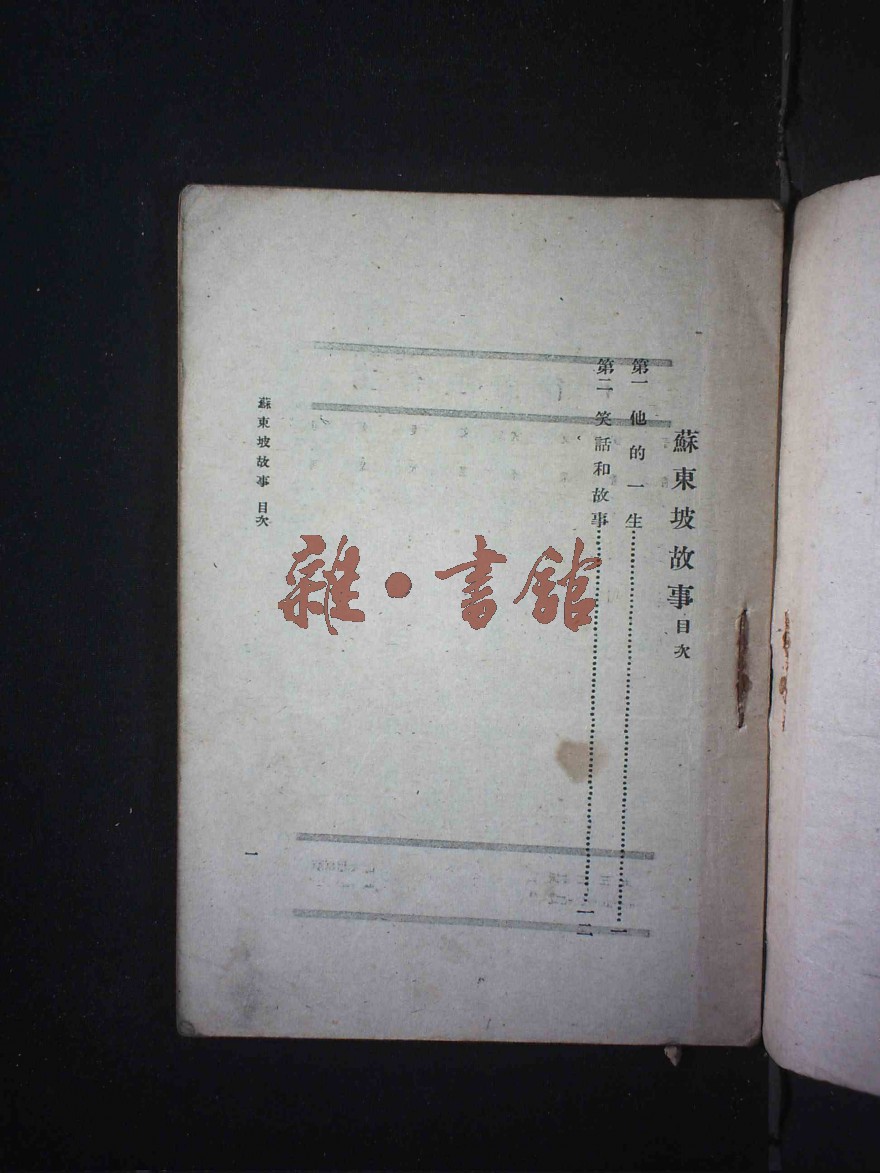 蘇東坡故事目次
第一 他的一生……………………一
第二 笑話和故事……………………一二
蘇東坡故事 目次
一
雜·書館